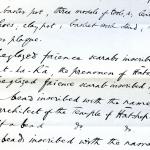 plaster pot, three models of tools,
shoes, clay pot, basket with lid,
plaque.
glazed faience scarabs inscribed
at-ka-Ra, the prenomen of Hatsh
glazed faience scarab inscribed
bead inscribed with the name
architect of the temple of Hatshep
of a bead do do
bead inscribed with the name